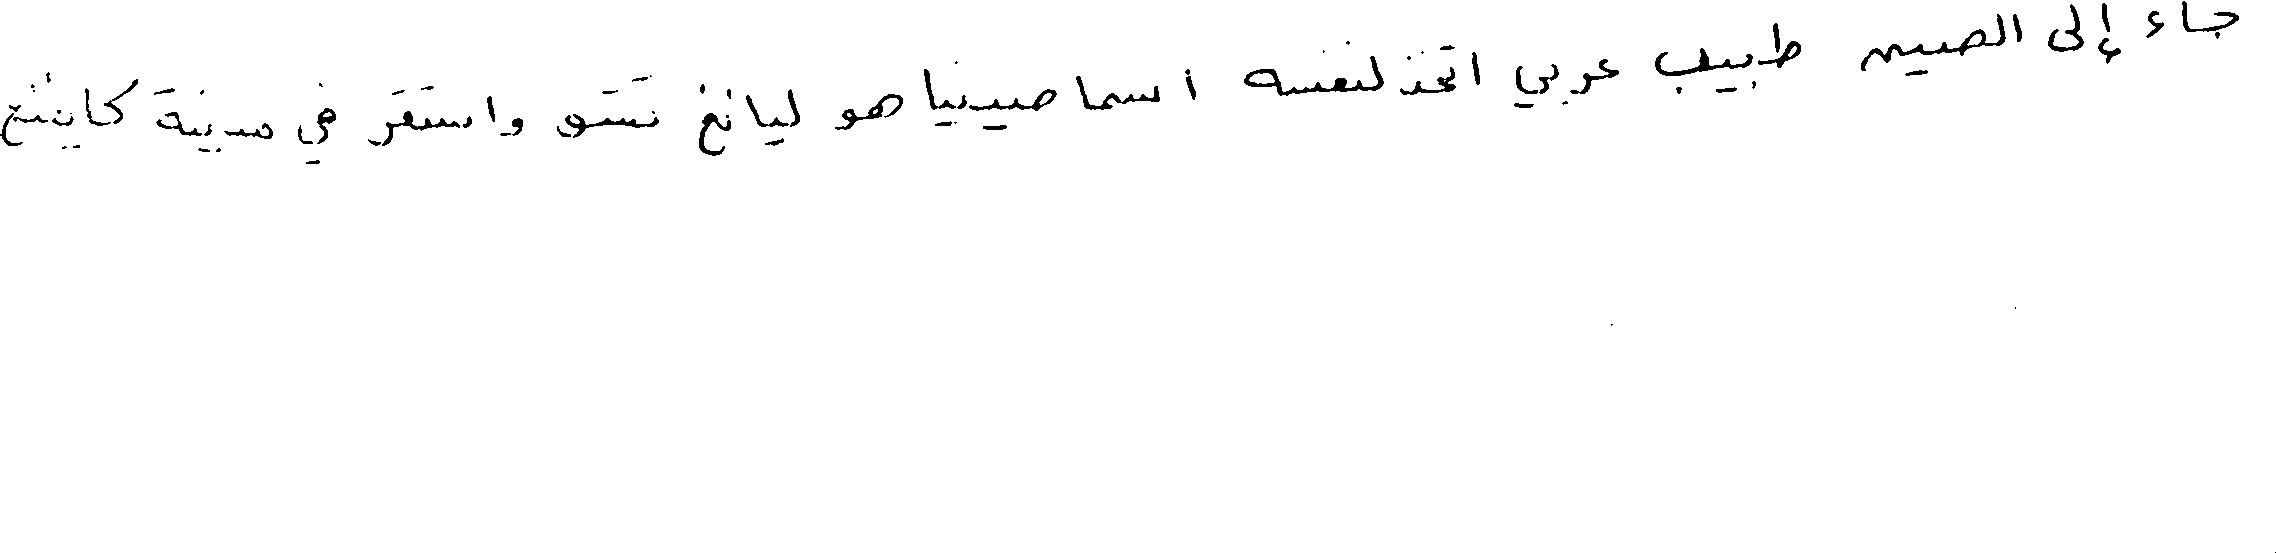 جاء إلى الصين طبيب عربي اتخذ لنفسه اسما صينيا هو ليانغ تشو واستقر في مدينة كايفنغ